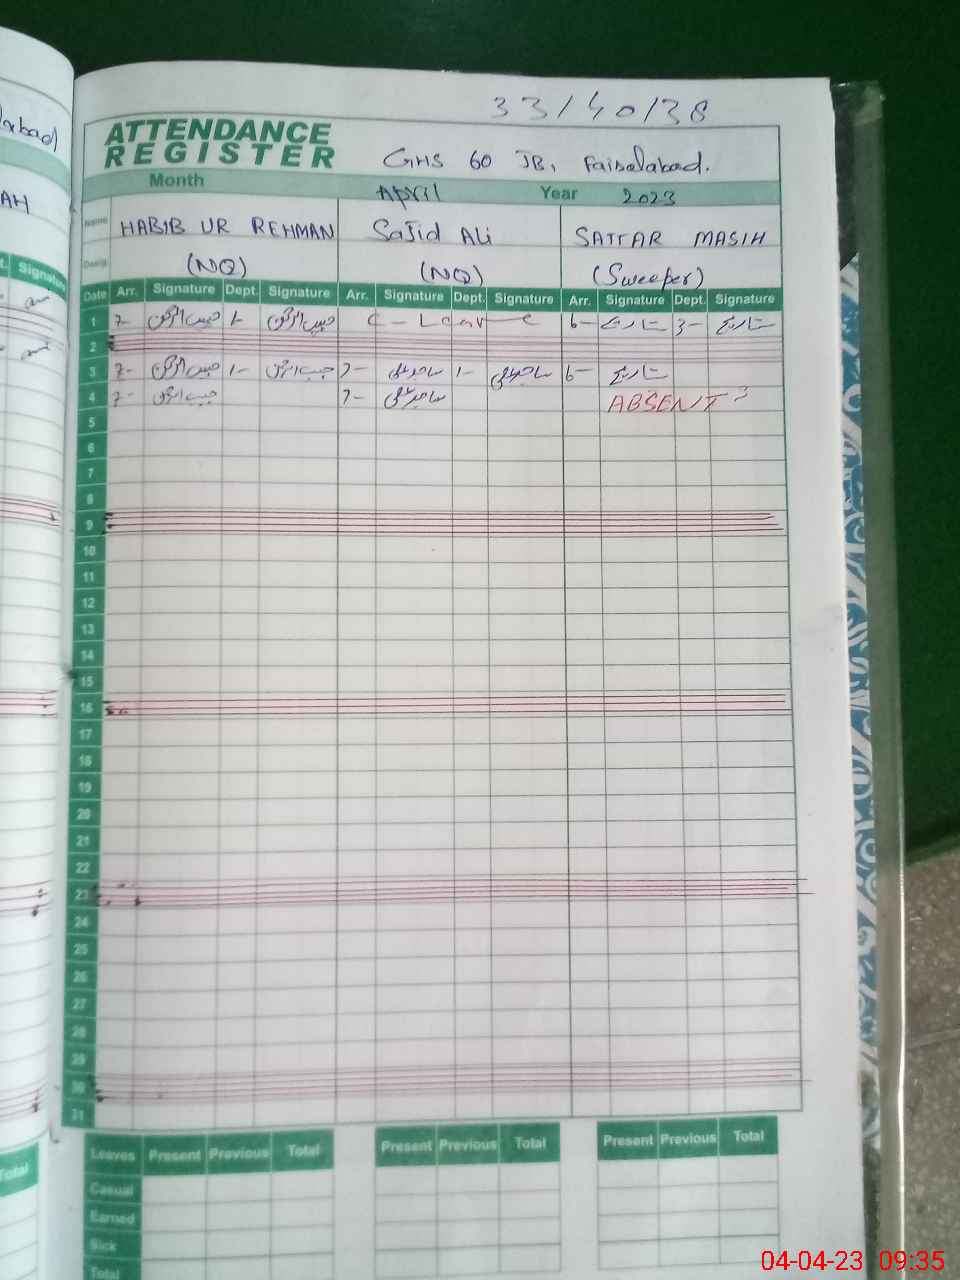 xbad
33/40/38
ATTENDANCE
REGISTER
GHS 60 JB, Faisalabad.
AH
Month April Year 2023
Name HABIB UR REHMAN Sajid Ali SATTAR MASIH
Desig. (NQ) (NQ) (Sweeper)
t. Signature
Date Arr. Signature Dept. Signature Arr. Signature Dept. Signature Arr. Signature Dept. Signature
1 7- حبیب الرحمٰن 1- حبیب الرحمٰن C - Leave 6- ستار مسیح 3- ستار مسیح
2
3 7- حبیب الرحمٰن 1- حبیب الرحمٰن 7- ساجد علی 1- ساجد علی 6- ستار مسیح
4 7- حبیب الرحمٰن 7- ساجد علی ABSENT
5
6
7
8
9
10
11
12
13
14
15
16
17
18
19
20
21
22
23
24
25
26
27
28
29
30
31
Leaves Present Previous Total Present Previous Total Present Previous Total
Total
Casual
Earned
Sick
Total
04-04-23 09:35